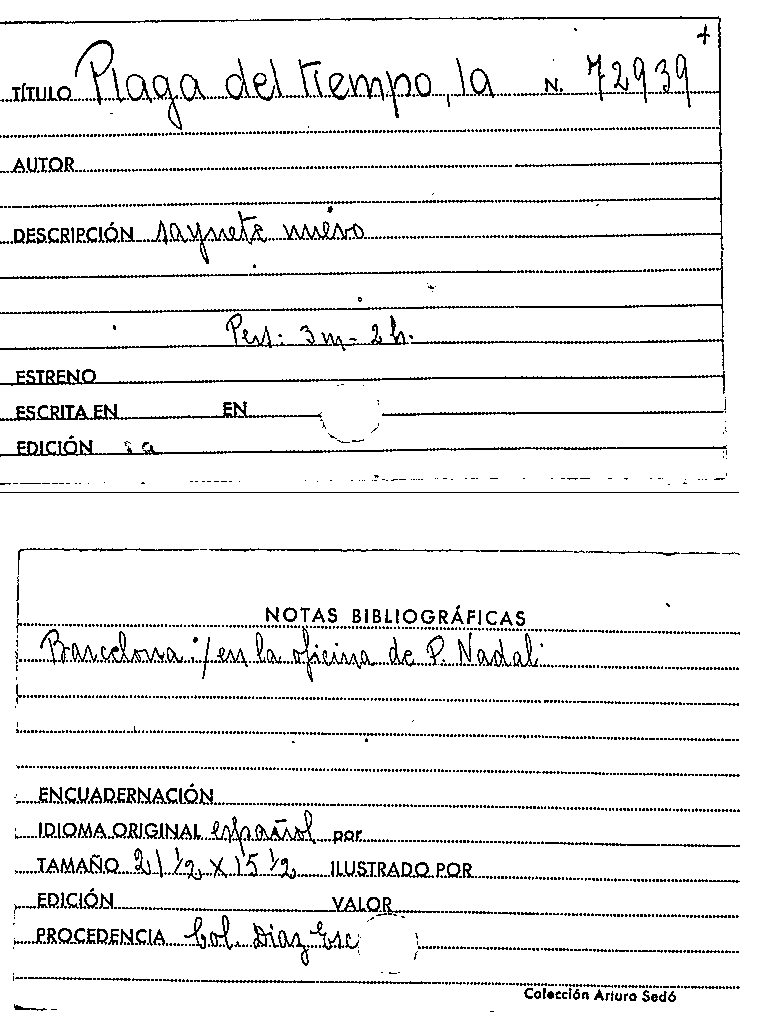 +
TÍTULO Plaga del tiempo, la N. 72939
AUTOR
DESCRIPCIÓN saynete nuevo
Pers: 3 m - 2 h.
ESTRENO
ESCRITA EN EN
EDICIÓN s a
NOTAS BIBLIOGRÁFICAS
Barcelona: / en la oficina de P. Nadal
ENCUADERNACIÓN
IDIOMA ORIGINAL español por
TAMAÑO 21 1/2 X 15 1/2 ILUSTRADO POR
EDICIÓN VALOR
PROCEDENCIA Col. Díaz Esc
Colección Arturo Sedó